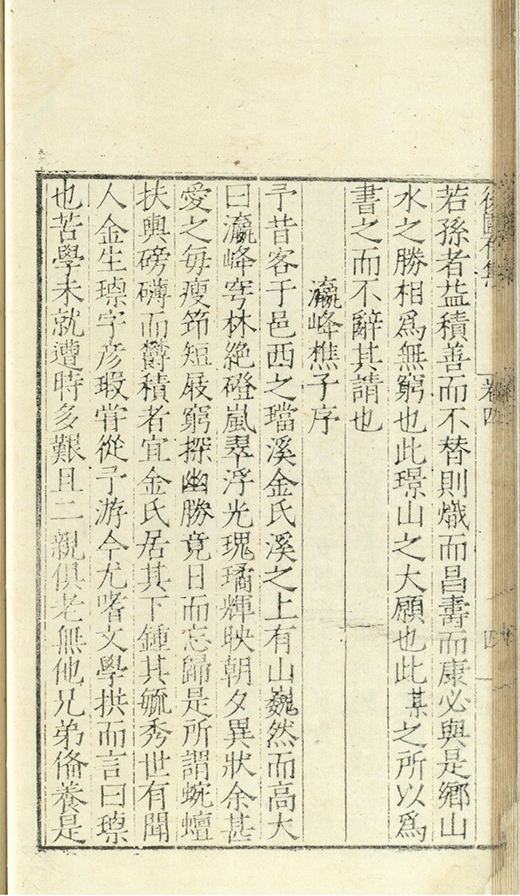 若孫者益積善而不替則熾而昌壽而康必與是鄉山
水之勝相爲無窮也此璟山之大願也此某之所以爲
書之而不辭其請也
瀛峰樵子序
予昔客于邑西之璫溪金氏溪之上有山巍然而高大
曰瀛峰穹林絶磴嵐翠浮光瑰璚輝映朝夕異狀余甚
愛之毎瘦笻短屐窮探幽勝竟日而忘歸是所謂蜿蟺
扶輿磅礴而欎積者宜金氏居其下鍾其毓秀世有聞
人金生㻞字彦瑕甞從予游今尤嗜文學拱而言曰㻞
也苦學未就遭時多艱且二親俱老無他兄弟偹養是
卷四
四